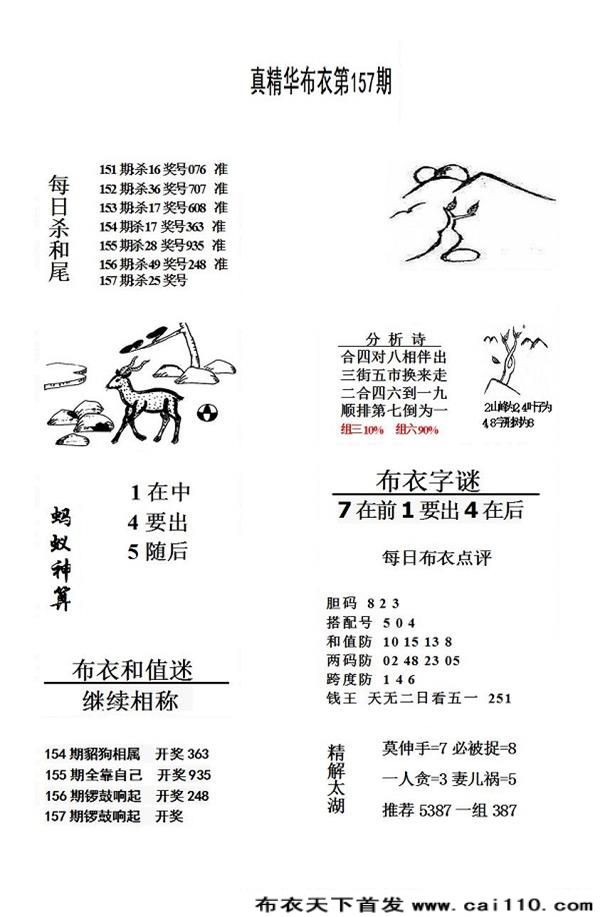 真精华布衣第157期
每日杀和尾
151期:杀16奖号076 准
152期:杀36奖号707 准
153期:杀17奖号608 准
154期:杀17奖号363 准
155期:杀28奖号935 准
156期:杀49奖号248 准
157期:杀25奖号
分析诗
合四对八相伴出
三街五市换来走
二合四六到一九
顺排第七倒为一
组三10% 组六90%
2山峰为2,4叶子为
4,8字形树为8
蚂蚁神算
1在中
4要出
5随后
布衣字谜
7在前1要出4在后
每日布衣点评
胆码 8 2 3
搭配号 5 0 4
和值防 10 15 13 8
两码防 02 48 23 05
跨度防 1 4 6
钱王 天无二日看五一 251
布衣和值迷
继续相称
154期貂狗相属 开奖363
155期全靠自己 开奖935
156期锣鼓响起 开奖248
157期锣鼓响起 开奖
精解太湖
莫伸手=7 必被捉=8
一人贪=3 妻儿祸=5
推荐 5387 一组 387
布衣天下首发 www.cai110.com